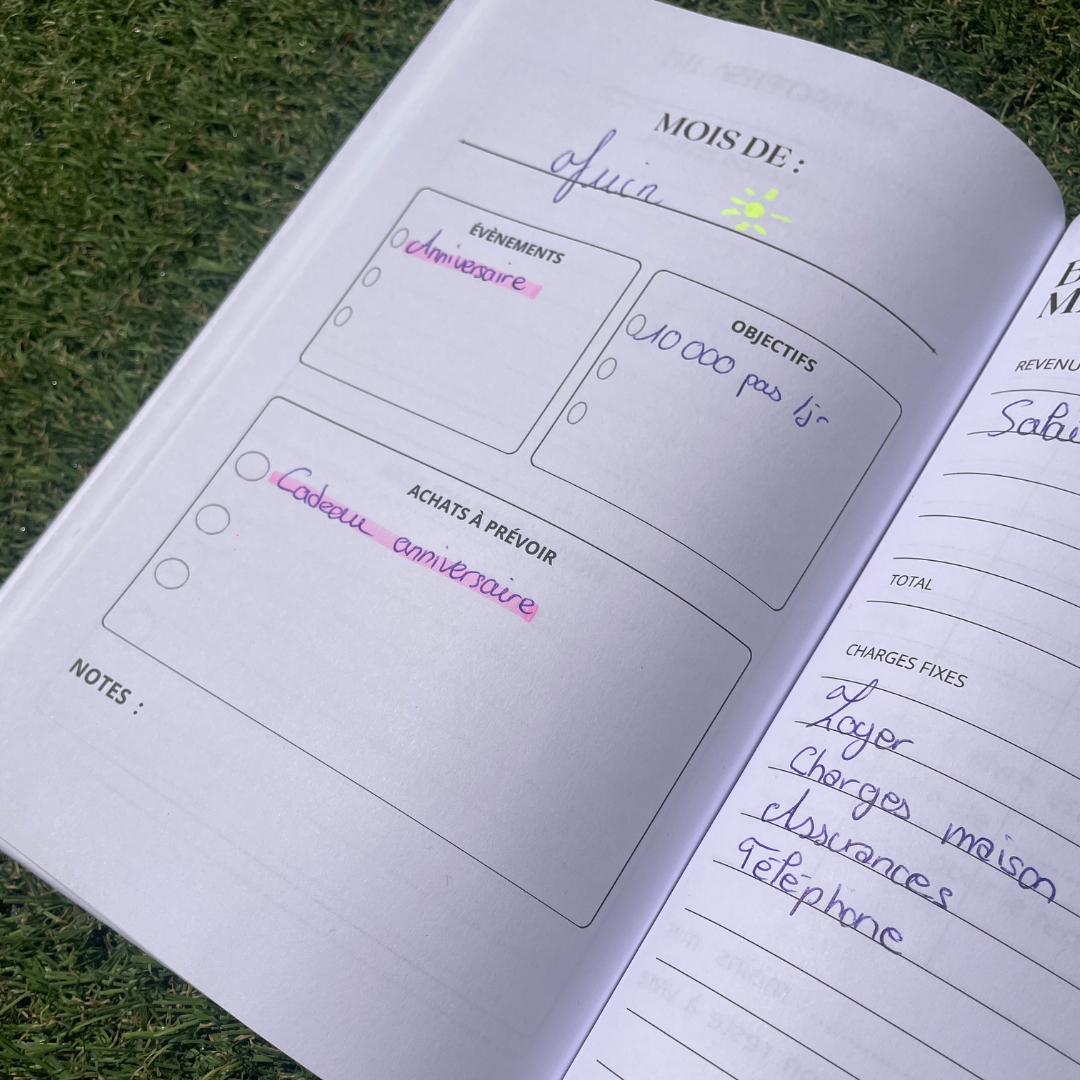 MOIS DE :
Juin
ÉVÈNEMENTS
Anniversaire
OBJECTIFS
10 000 pas /jr
ACHATS À PRÉVOIR
Cadeau anniversaire
NOTES :
REVENU
TOTAL
CHARGES FIXES
Loyer
Charges maison
Assurances
Téléphone